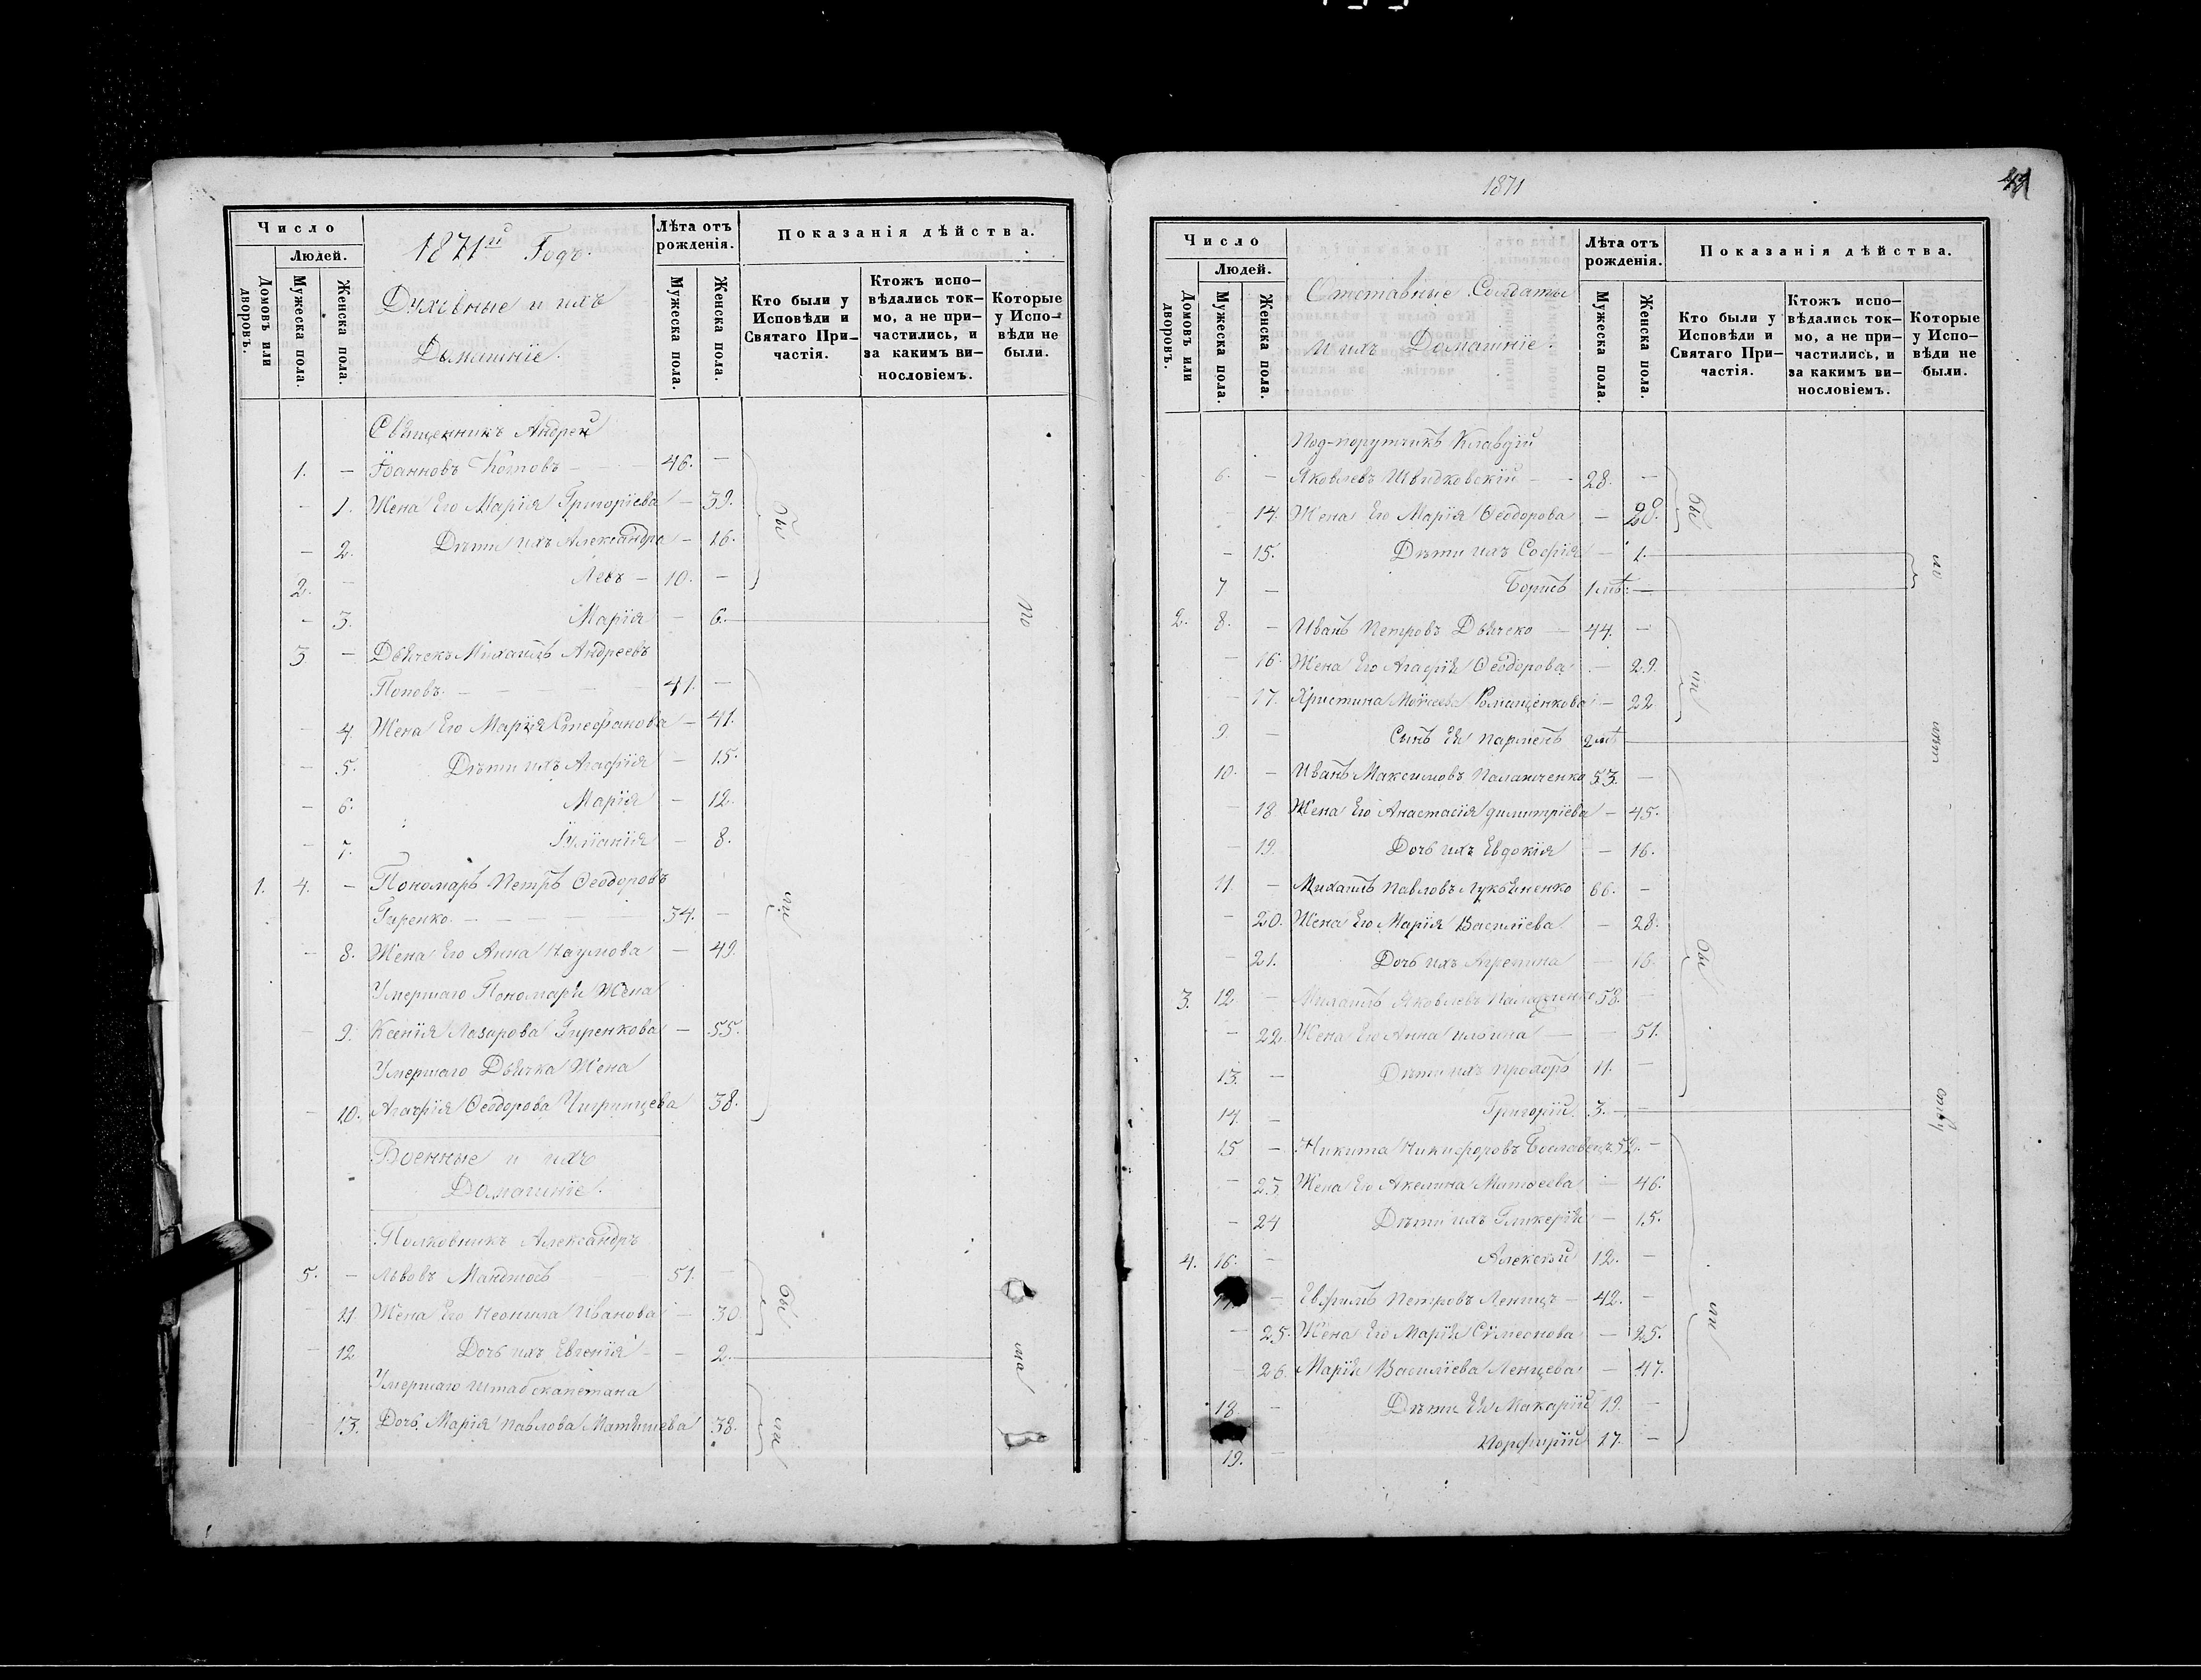 Число
1871й Годъ.
Лѣта отъ рожденія.
Показанія дѣйства.
Людей.
Домовъ или дворовъ.
Мужеска пола.
Женска пола.
Духовные и ихъ
Домашніе.
Мужеска пола.
Женска пола.
Кто были у Исповѣди и Святаго Причастія.
Ктожъ исповѣдались токмо, а не причастились, и за какимъ винословіемъ.
Которые у Исповѣди не были.
Священникъ Андрей
1. — Іоанновъ Котовъ — 46. —
— 1. Жена Его Марія Григоріева — 39.
— 2. Дѣти ихъ Александра — 16.
2. — Левъ — 10. —
— 3. Марія — 6.
3 — Дьячекъ Михаилъ Андреевъ
Поповъ. — 41. —
— 4. Жена Его Марія Стефанова — 41.
— 5. Дѣти ихъ Агафія — 15.
— 6. Марія — 12.
— 7. Іуліанія — 8.
1. 4. — Пономарь Петръ Ѳеодоровъ
Гиренко. — 54. —
— 8. Жена Его Анна Наумова — 49.
Умершаго Пономаря Жена
— 9. Ксенія Лазарова Гиренкова — 55.
Умершаго Дьячка Жена
— 10. Агафія Ѳеодорова 38.
Военные и ихъ
Домашніе.
Полковникъ Александръ
5. — Львовъ 51. —
— 11. Жена Его Неонила Иванова — 30.
— 12 Дочь ихъ Евгенія — 2.
Умершаго Штабскапетана
— 13. Дочь Марія Павлова 38.
бы
ли
бы
ли
по
ма
1871
Число
Лѣта отъ рожденія.
Показанія дѣйства.
Людей.
Домовъ или дворовъ.
Мужеска пола.
Женска пола.
Отставные Солдаты
и ихъ Домашніе.
Мужеска пола.
Женска пола.
Кто были у Исповѣди и Святаго Причастія.
Ктожъ исповѣдались токмо, а не причастились, и за какимъ винословіемъ.
Которые у Исповѣди не были.
Под-порутчикъ Клавдій
6. — Яковлевъ Швидковскій — 28. —
— 14. Жена Его Марія Ѳеодорова — 20.
— 15. Дѣти ихъ Софія — 1.
7 — Борисъ 1 мѣ: —
2. 8. — Иванъ Петровъ Дьяченко — 44. —
— 16. Жена Его Агафія Ѳеодорова — 29.
— 17. Христина Моѵсеева Романченкова — 22
9. — Сынъ Ея Парменъ 2 мѣ
10. — Иванъ Максимовъ 53. —
— 18 Жена Его Анастасія Димитріева — 45.
— 19. Дочь ихъ Евдокія — 16.
11. — Михаилъ Павловъ Лукьяненко 66. —
— 20. Жена Его Марія Василіева — 28.
— 21. Дочь ихъ Агрепина — 16.
3. 12 — Михаилъ Яковлевъ 58. —
— 22. Жена Его Анна Ильина — 51.
13. — Дѣти ихъ Прохоръ 11. —
14. — Григорій. 3. —
15 — Никита Никифоровъ 52. —
— 23. Жена Его Акелина Матѳеева — 46.
— 24 Дѣти ихъ Гликерія — 15.
4. 16. — Алексѣй 12. —
— Евфимъ Петровъ Ленецъ — 42. —
— 25. Жена Его Марія Сѵмеонова — 25.
— 26. Марія Василіева Ленцева — 47.
18. — Дѣти Ея Макарій 19. —
19. — Порфирій 17. —
бы
ли
бы
ли